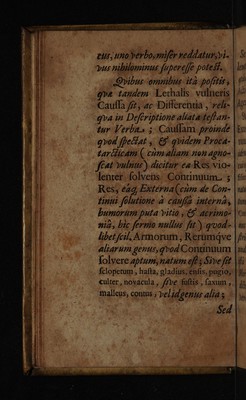 tus, uno verbo, miser reddatur, vi-
vus nihilominus superesse potest.
Qvibus omnibus ità positis,
qvæ tandem Lethalis vulneris
Caussa sit, ac Differentia, reli-
qva in Descriptione allata testan-
tur Verba.; Caussam proinde
qvod spectat, & qvidem Proca-
tarcticam (cùm aliam non agno-
scat vulnus) dicitur ea Res vio-
lenter solvens Continuum.;
Res, eáq; Externa (cùm de Con-
tinui solutione à caussa internâ,
humorum puta vitio, & acrimo-
niâ, hìc sermo nullus sit) qvod-
libet scil. Armorum, Rerumqve
aliarum genus, qvod Continuum
solvere aptum, natum est; Sive sit
sclopetum, hasta, gladius, ensis, pugio,
culter, novacula, sive fustis, saxum,
malleus, contus; vel id genus alia;
Sed